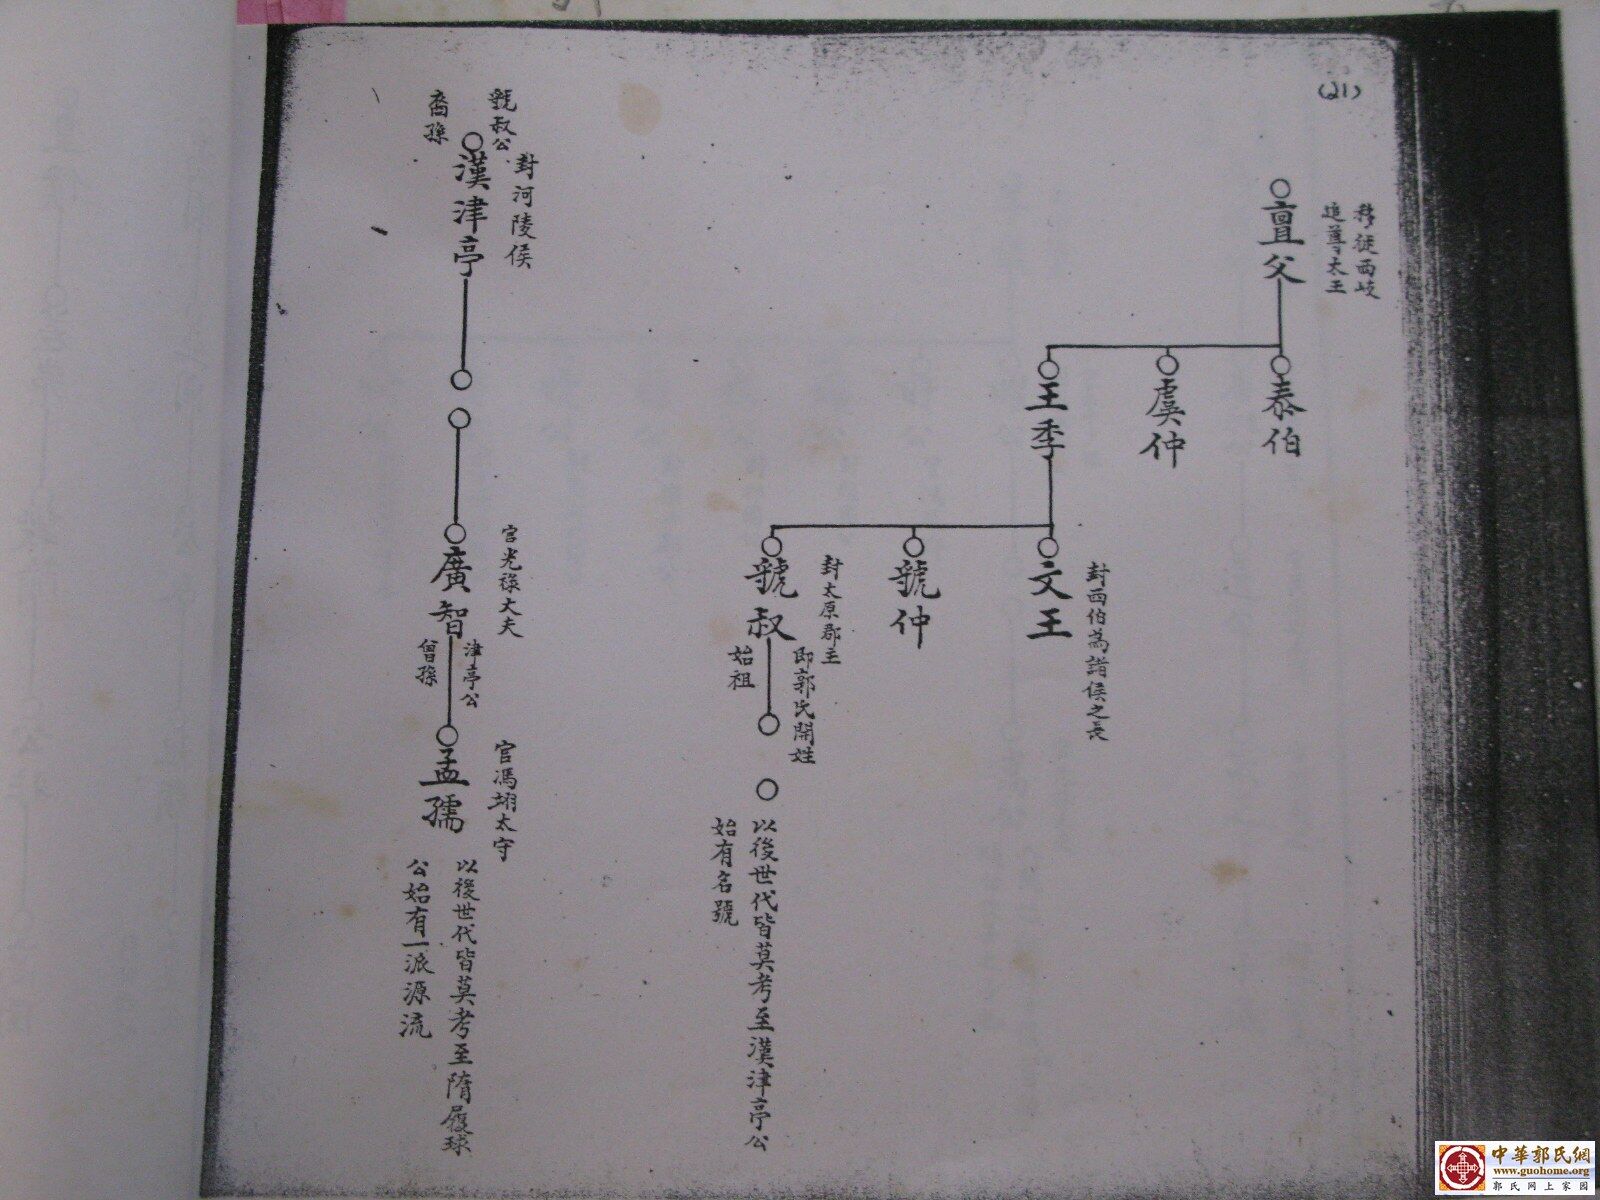 (21)
移徙西岐
追尊太王
亶父
泰伯
虞仲
王季
封西伯為諸侯之長
文王
虢仲
封太原郡主
虢叔
即郭氏開姓
始祖
以後世代皆莫考至漢津亭公
始有名號
虢叔公
裔孫
封河陵侯
漢津亭
官光祿大夫
廣智
津亭公
曾孫
官馮翊太守
孟孺
以後世代皆莫考至隋履球
公始有一派源流
中華郭氏網
www.guohome.org
郭氏网上家园